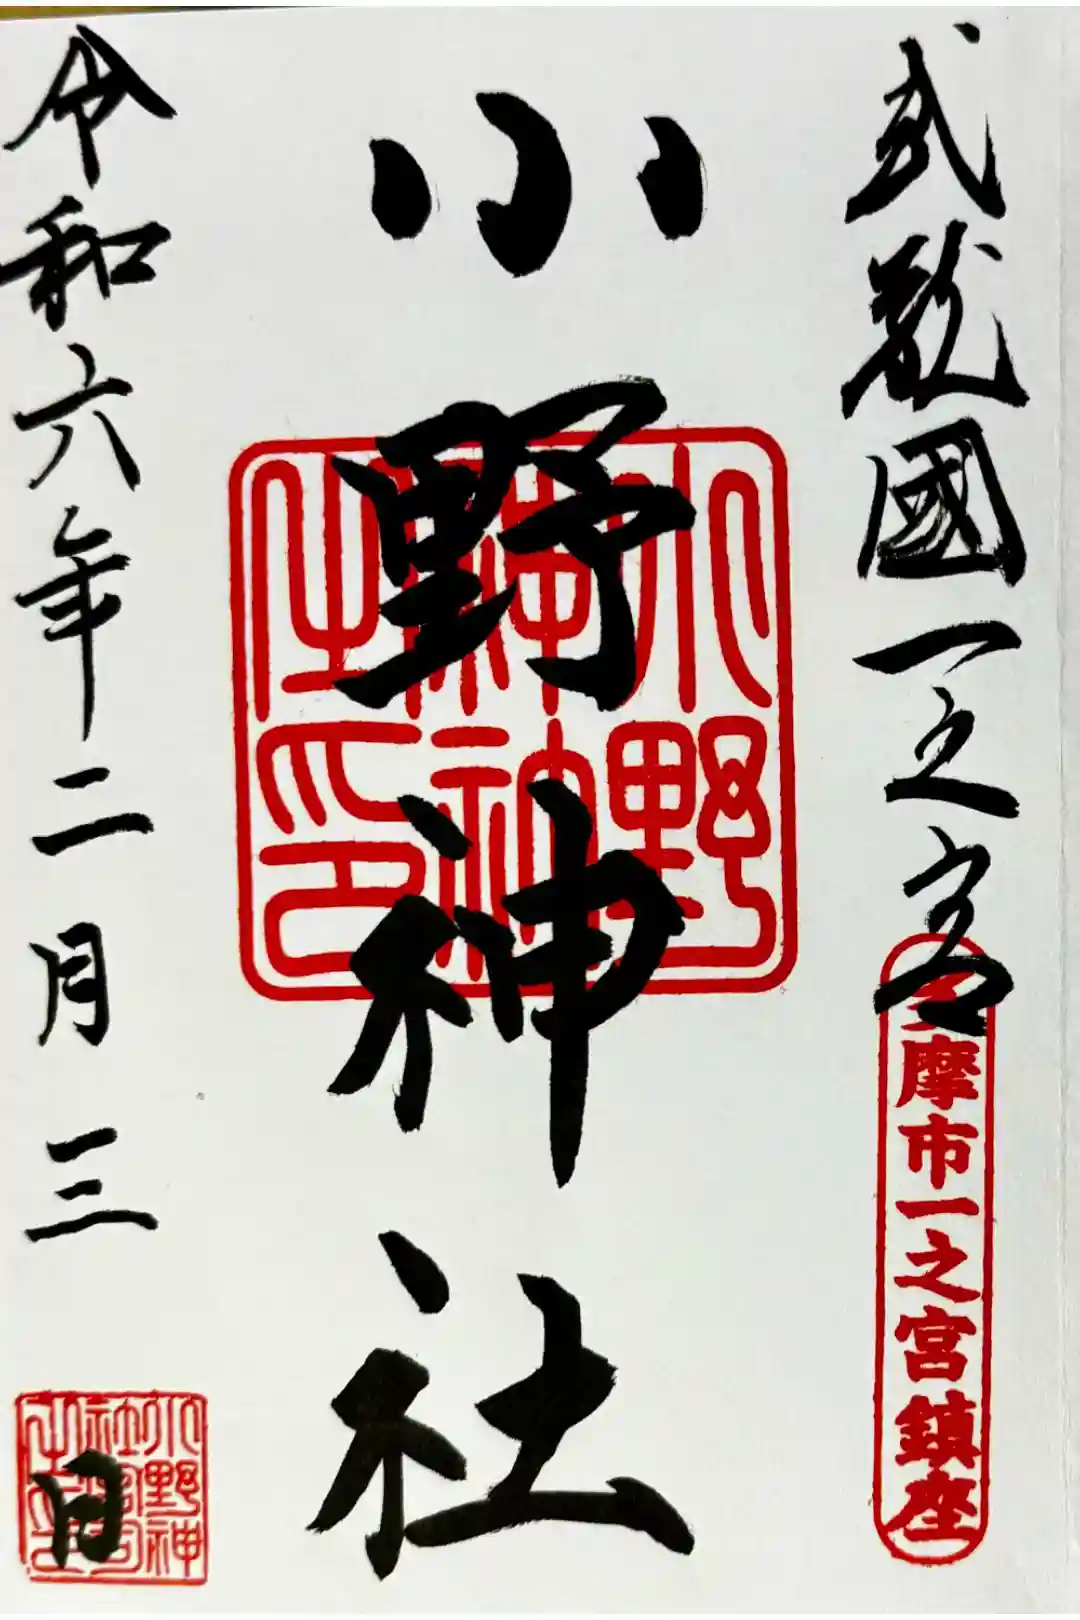 武蔵國一之宮
多摩市一之宮鎮座
小野神社
小野神社之印
令和六年二月三日
小野神社宮司之印